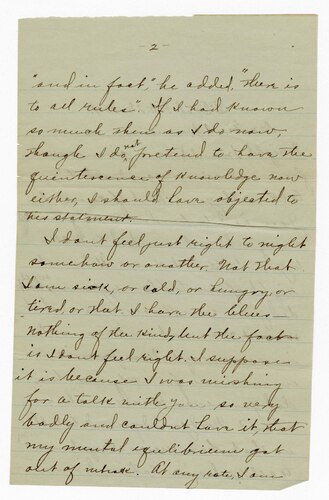 - 2 -
"and in fact," he added, "there is
to all rules". If I had known
so much then as I do now,
though I do not pretend to have the
quintessence of knowledge now
either, I should have objected to
his statment.
I dont feel just right to night
somehow or another. Not that
I am sick, or cold, or hungry, or
tired or that I have the blues
nothing of the kind, but the fact
is I dont feel right. I suppose
it is because I was wishing
for a talk with you so very
badly and couldnt have it, that
my mental equilibrium got
out of whak. At any rate, I am